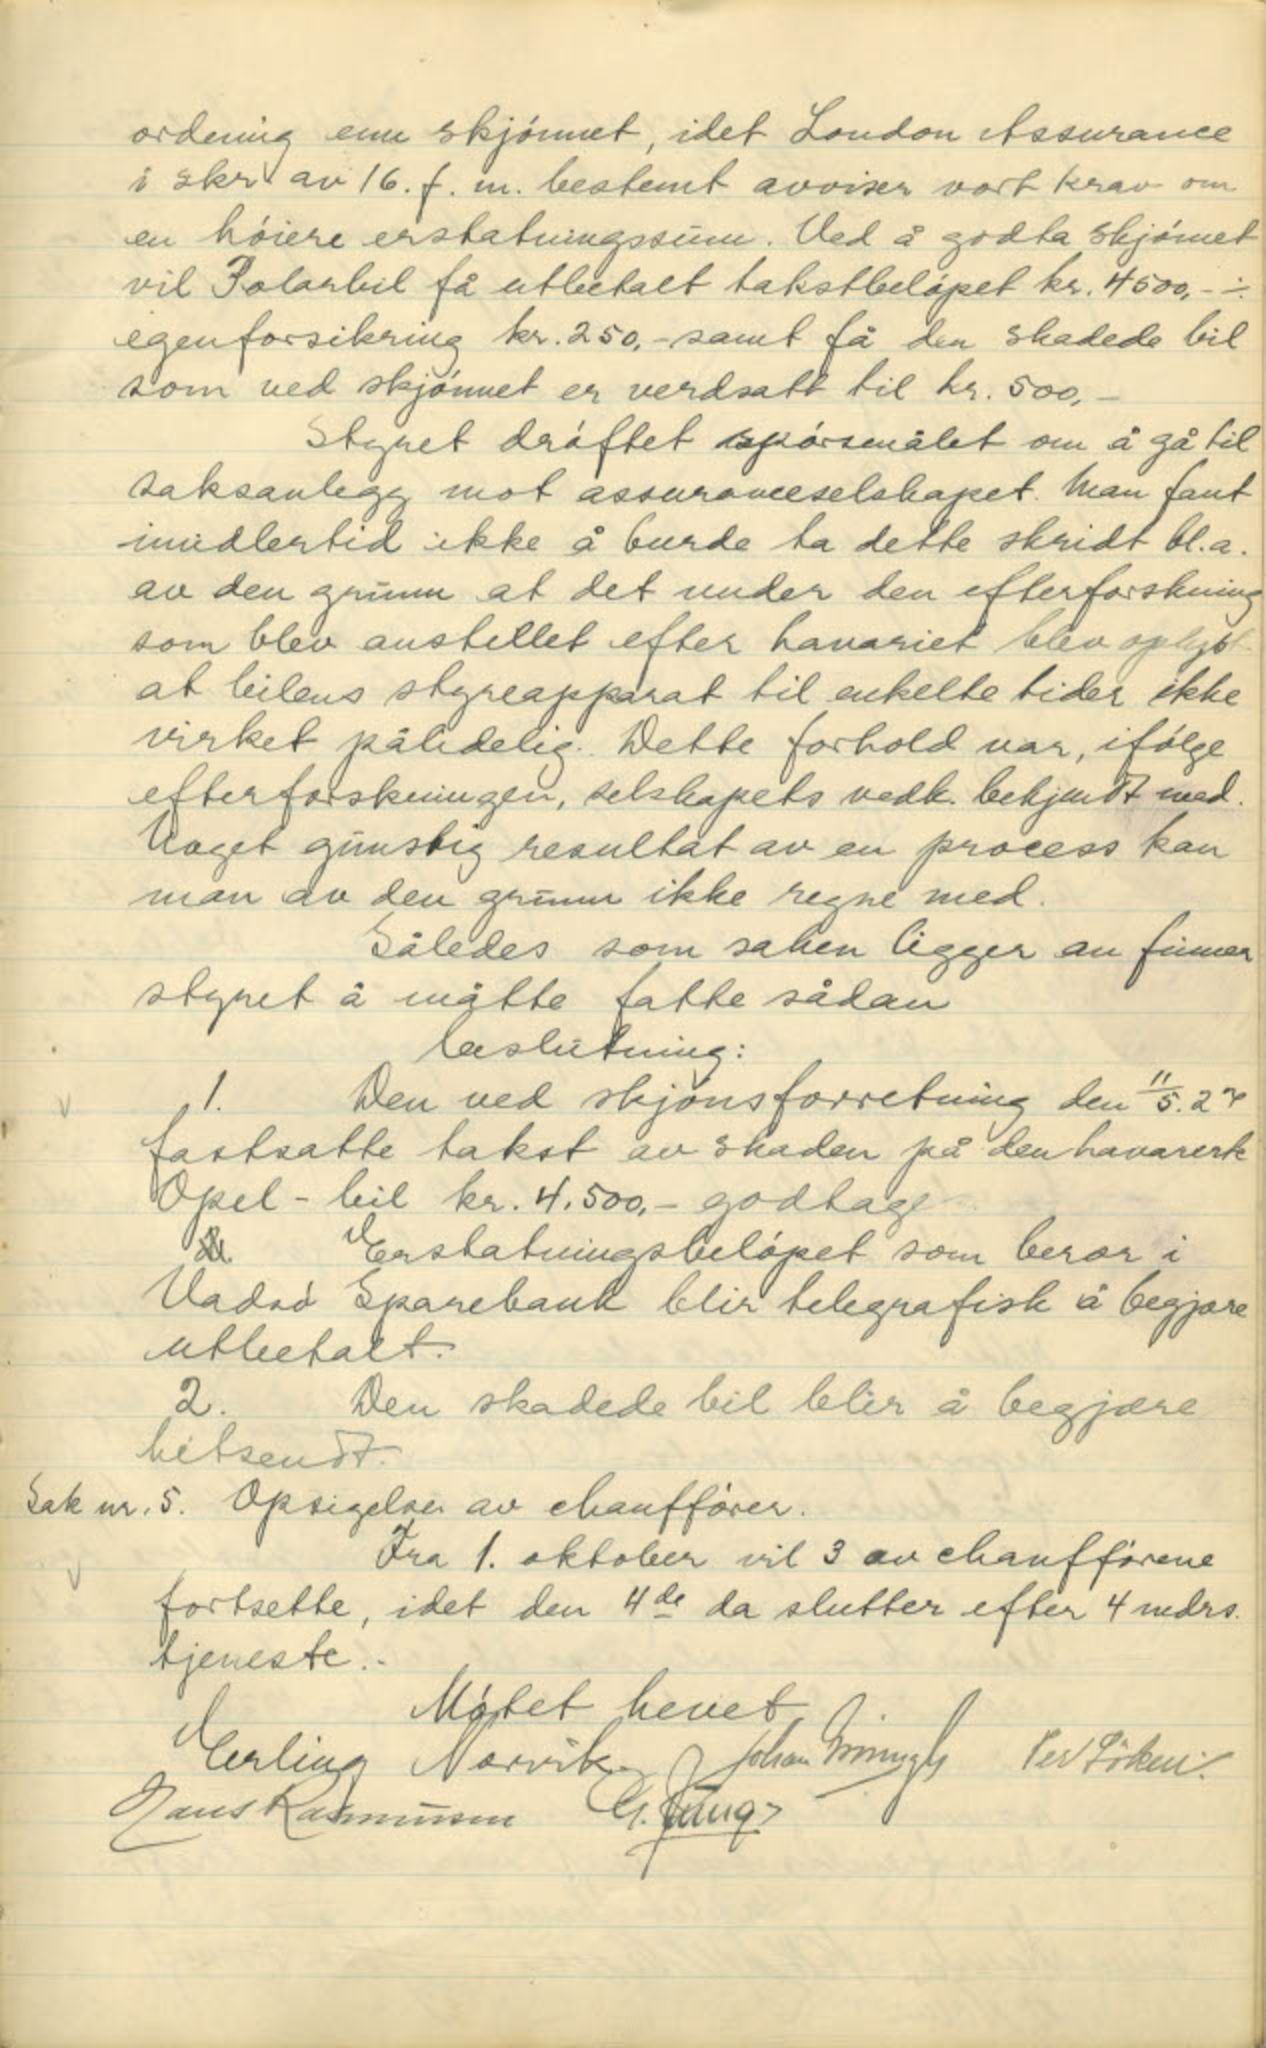 ordning enn skjønnet, idet London Assurance
i skr. av 16. f. m. bestemt avviser vort krav om
en höiere erstatningssum. Ved å godta skjönnet
vil Polarbil få utbetalt takstbelöpet kr. 4500,- ÷
egenforsikring kr. 250,- samt få den skadede bil
som ved skjönnet er verdsatt til kr. 500,-
Styret dröftet spörsmålet om å gå til
saksanlegg mot assuranceselskapet. Man fant
imidlertid ikke å burde ta dette skridt bl.a.
av den grunn at det under den efterforskning
som blev anstellet efter havariet blev oplyst
at bilens styreapparat til enkelte tider ikke
virket pålidelig. Dette forhold var, ifölge
efterforskningen, selskapets vedk. bekjendt med.
Noget gunstig resultat av en process kan
man av den grunn ikke regne med.
Således som saken ligger an finner
styret å måtte fatte sådan
beslutning:
1. Den ved skjönsforretning den 11/5.
fastsatte takst av skaden på den havarerte
Opel-bil kr. 4.500,- godtage
Erstatningsbelöpet som beror i
Vadsö Sparebank blir telegrafisk å begjære
utbetalt.
2. Den skadede bil blir å begjære
hitsendt.
Sak nr. 5. Opsigelse av chaufförer.
Fra 1. oktober vil 3 av chaufförene
fortsette, idet den 4de da slutter efter 4 mdrs.
tjeneste.-
Mötet hevet
Erling Norvik Johan Per
Hans Rasmussen G.